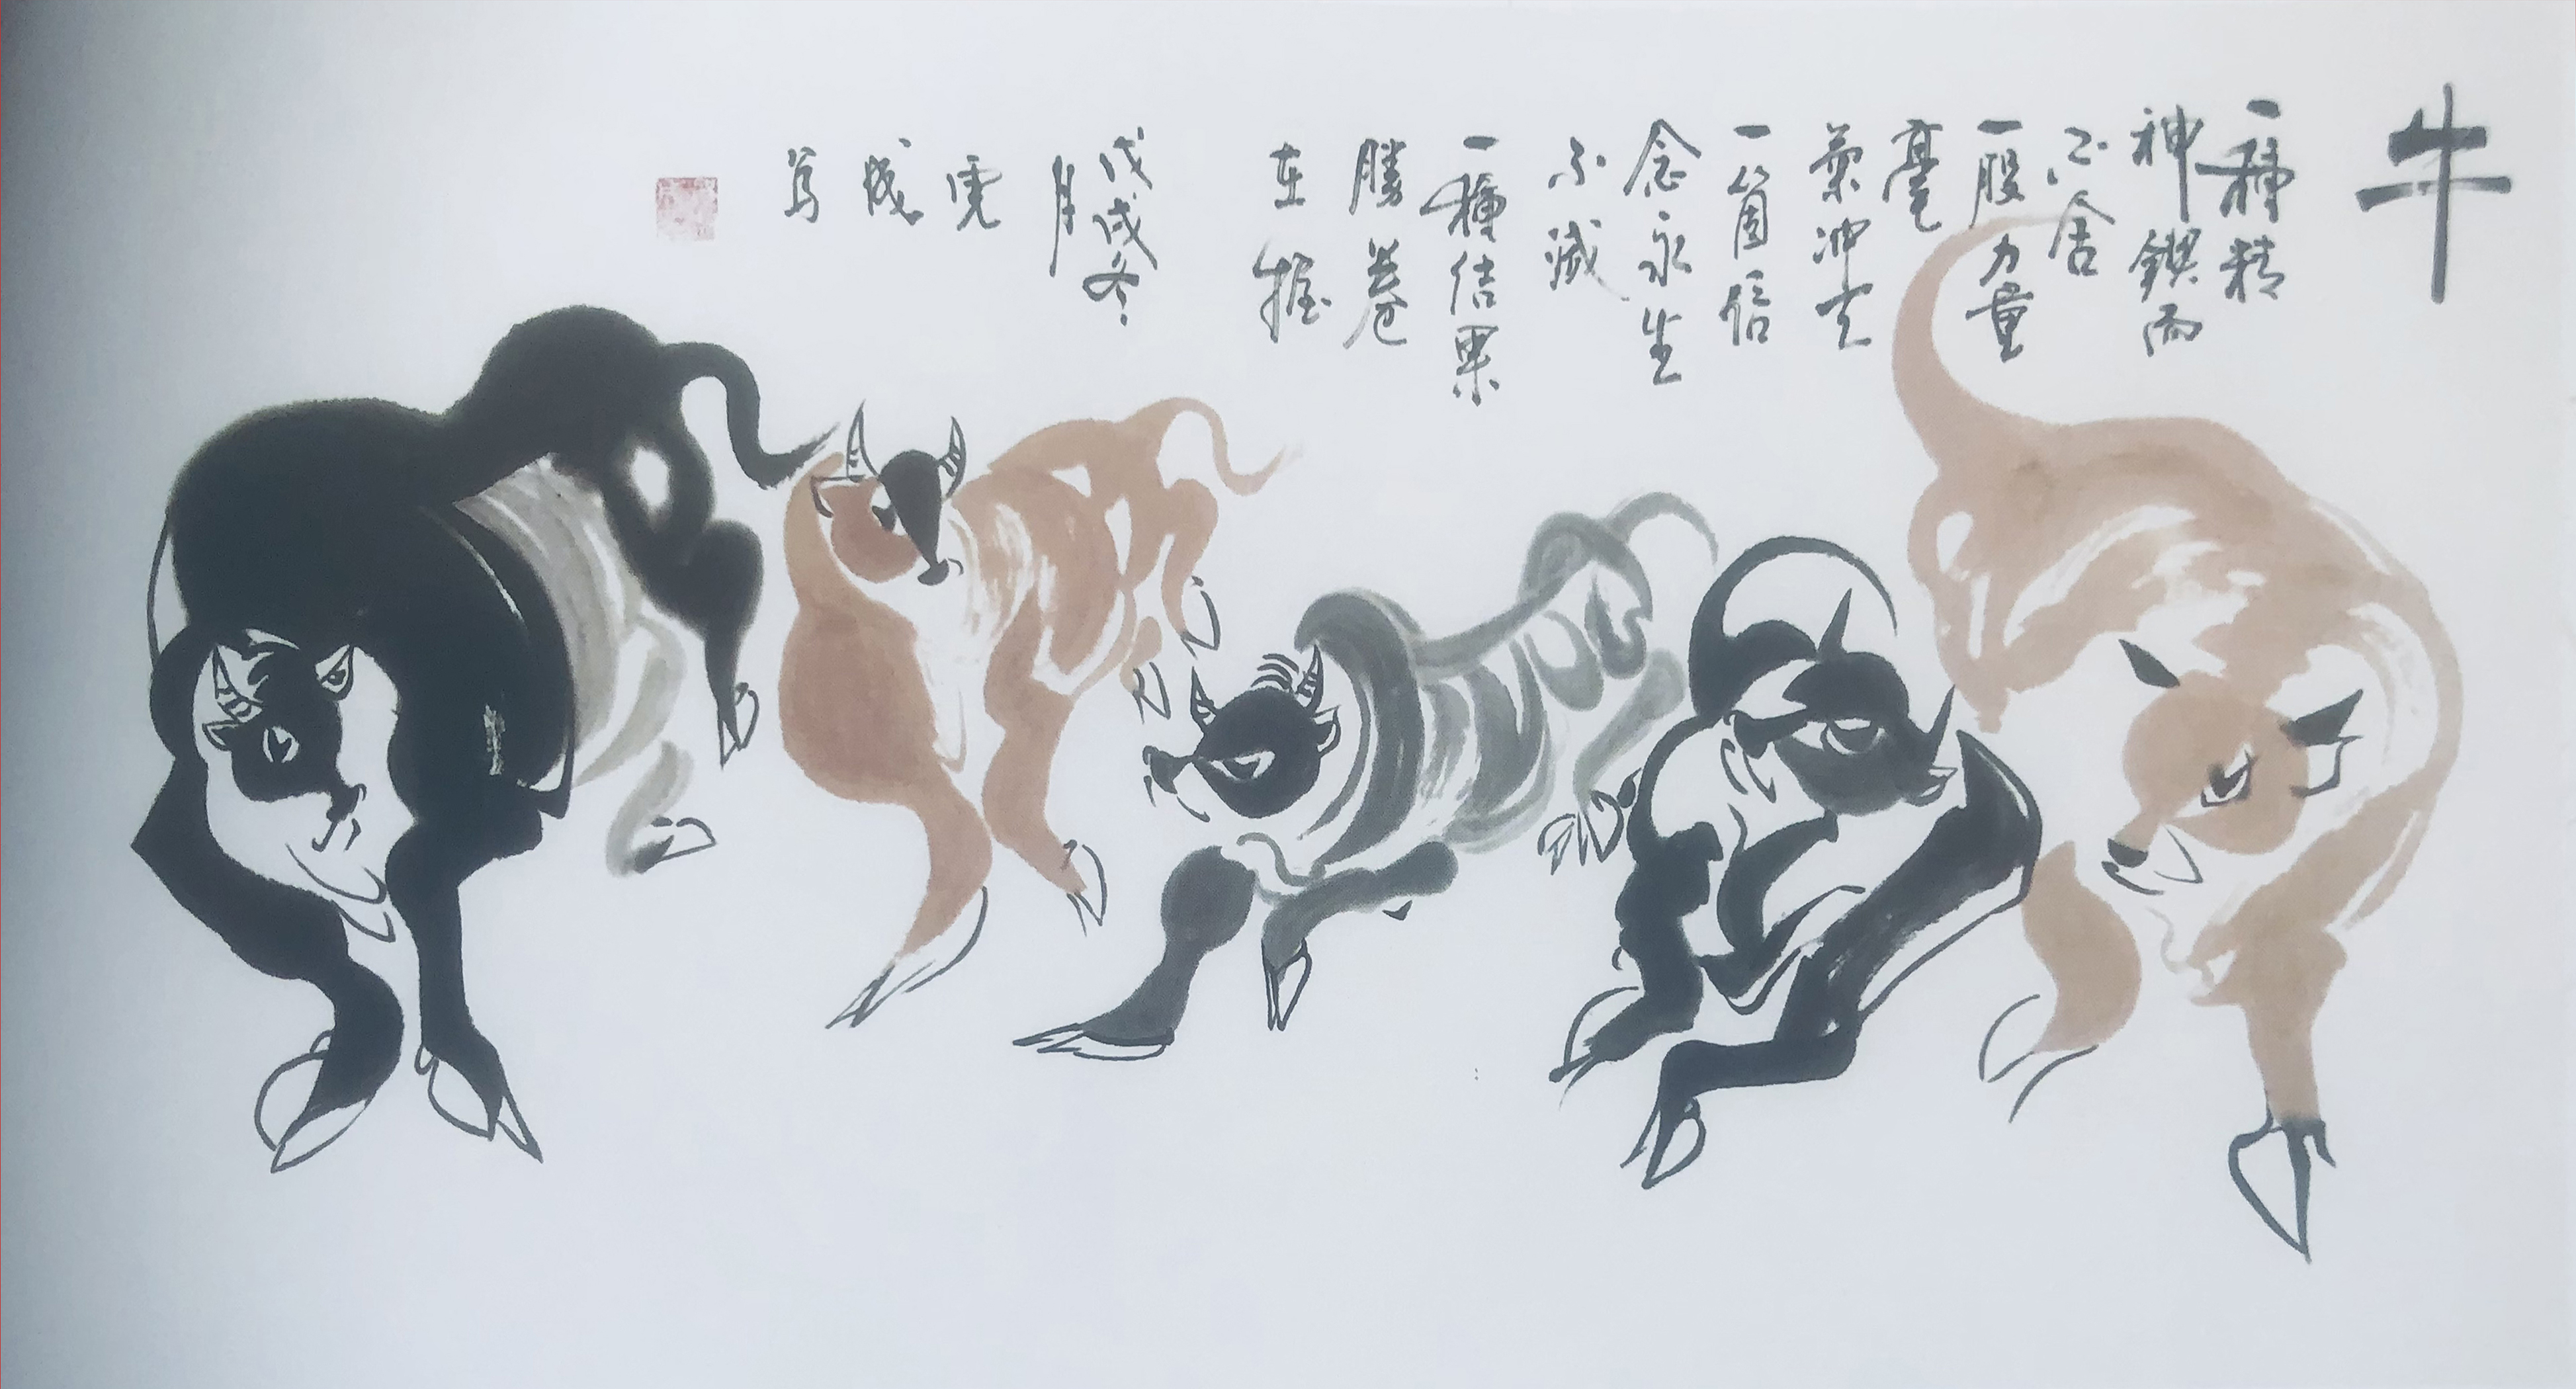 牛
一種精
神鍥而
不舍
一股力量
豪
氣沖天
一箇信
念永生
不滅
一種结果
勝卷
在握
戊戌冬
月
成
写